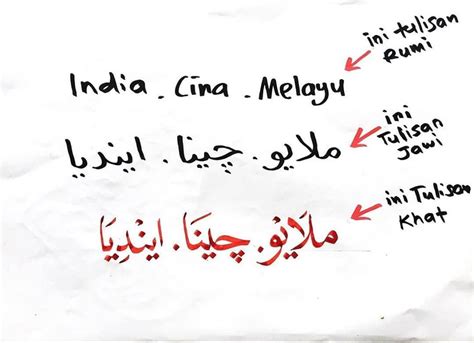 ini tulisan
Rumi
India . Cina . Melayu
ini
Tulisan
Jawi
ملايو . چينا . اينديا
ini Tulisan
Khat
مَلَايُو . چِينَا . اينْدِيَا